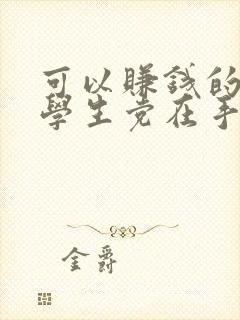 可以賺錢的
學生党在手
金爵